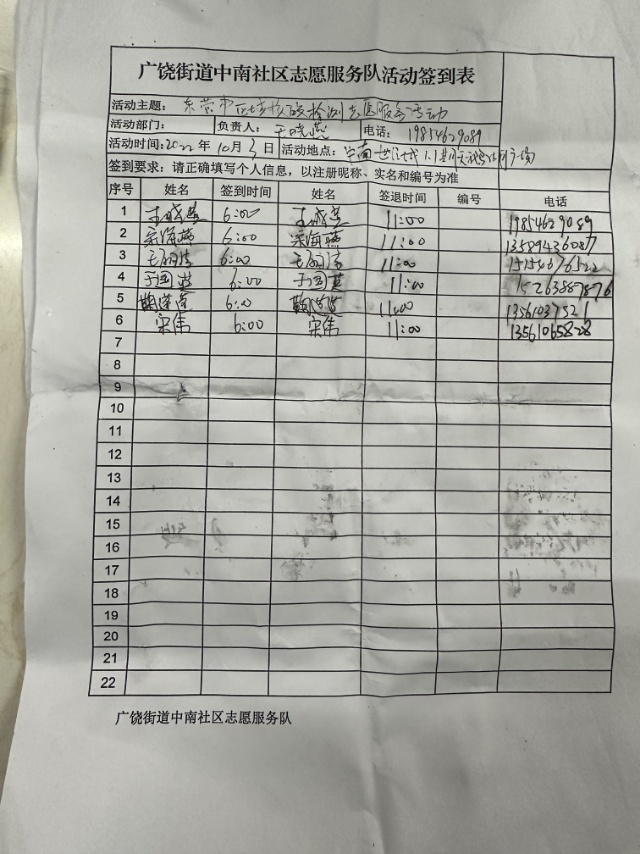 广饶街道中南社区志愿服务队活动签到表
活动主题: 东营市区域核酸检测志愿服务活动
活动部门: 负责人: 王晓燕 电话: 19854629089
活动时间: 2022年10月3日 活动地点: 中南世纪城1.1期
签到要求: 请正确填写个人信息，以注册昵称、实名和编号为准
序号 姓名 签到时间 姓名 签退时间 编号 电话
1 6:00 11:00 19854629089
2 宋海燕 6:00 宋海燕 11:00 13589436087
3 6:00 11:00 15154676522
4 于国英 6:00 于国英 11:00 15263887876
5 6:00 11:00 13561037521
6 宋伟 6:00 宋伟 11:00 13561065828
7
8
9
10
11
12
13
14
15
16
17
18
19
20
21
22
广饶街道中南社区志愿服务队